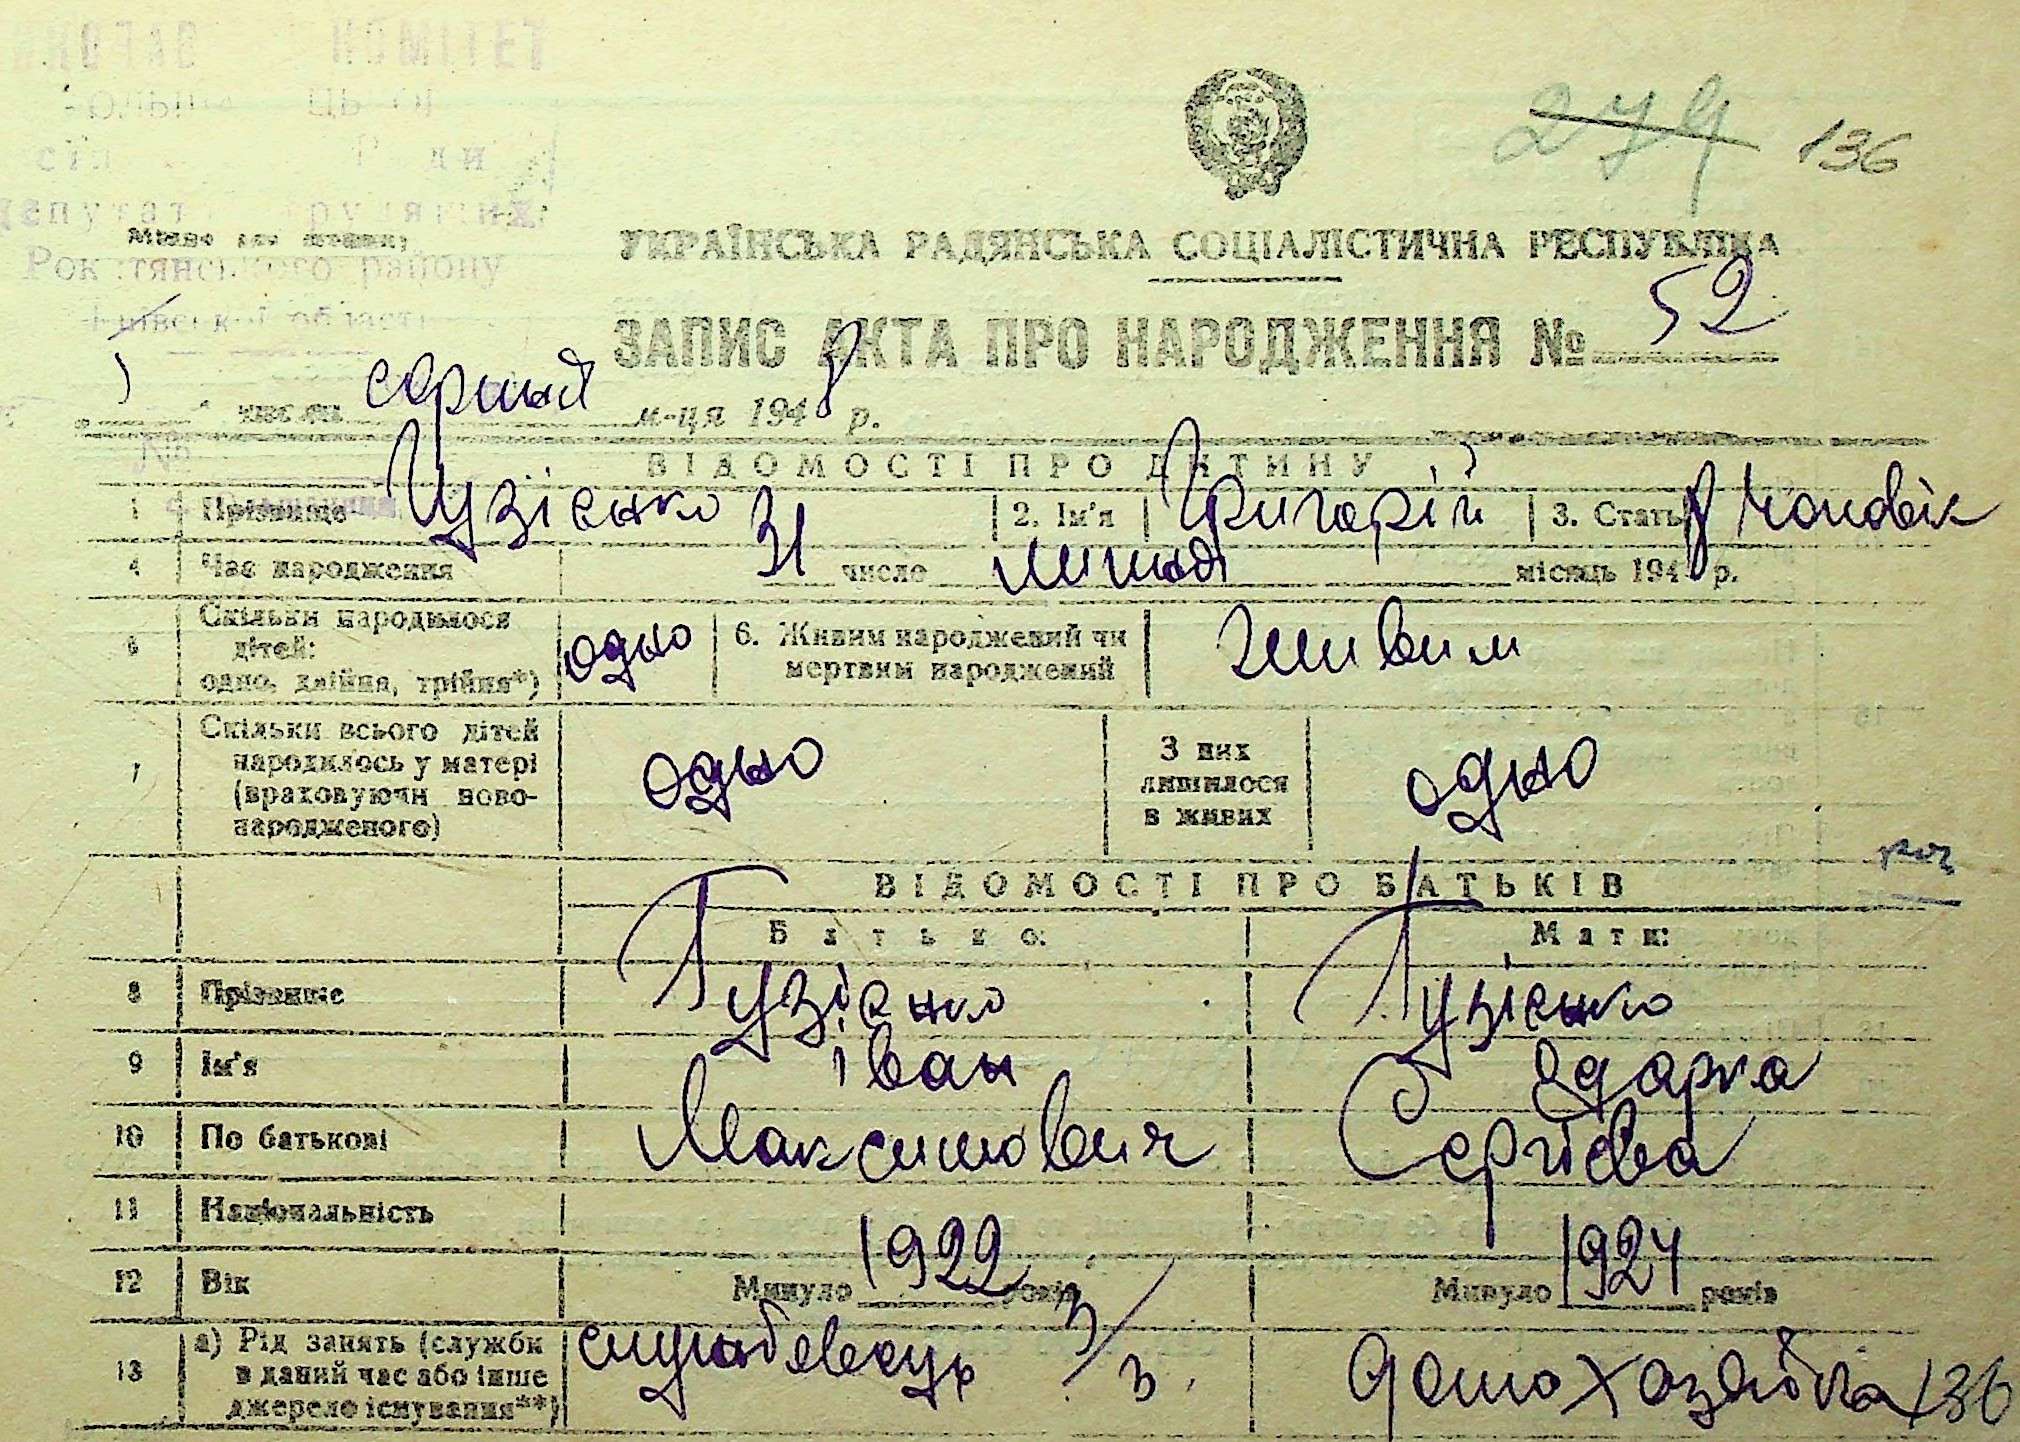 КОМІТЕТ
депутатів трудящих
Рокитянського району
Київської області
279 136
УКРАЇНСЬКА РАДЯНСЬКА СОЦІАЛІСТИЧНА РЕСПУБЛІКА
ЗАПИС АКТА ПРО НАРОДЖЕННЯ № 52
числа серпня м-ця 1948 р.
ВІДОМОСТІ ПРО ДИТИНУ
1 Прізвище Гузієнко 2. Ім'я Григорій 3. Стать чоловік
4 Час народження 31 число липня місяць 1948 р.
5 Скільки народилося
дітей:
одно, двійня, трійня*) одно 6. Живим народжений чи
мертвим народжений живим
7 Скільки всього дітей
народилось у матері
(враховуючи ново-
народженого) одно З них
лишилося
в живих одно
ВІДОМОСТІ ПРО БАТЬКІВ
Батько: Мати:
8 Прізвище Гузієнко Гузієнко
9 Ім'я Іван Одарка
10 По батькові Максимович Сергієва
11 Національність
12 Вік Минуло 1922 років Минуло 1924 років
13 а) Рід занять (служби
в даний час або інше
джерело існування**) службовець з/з. домохозяйка 136